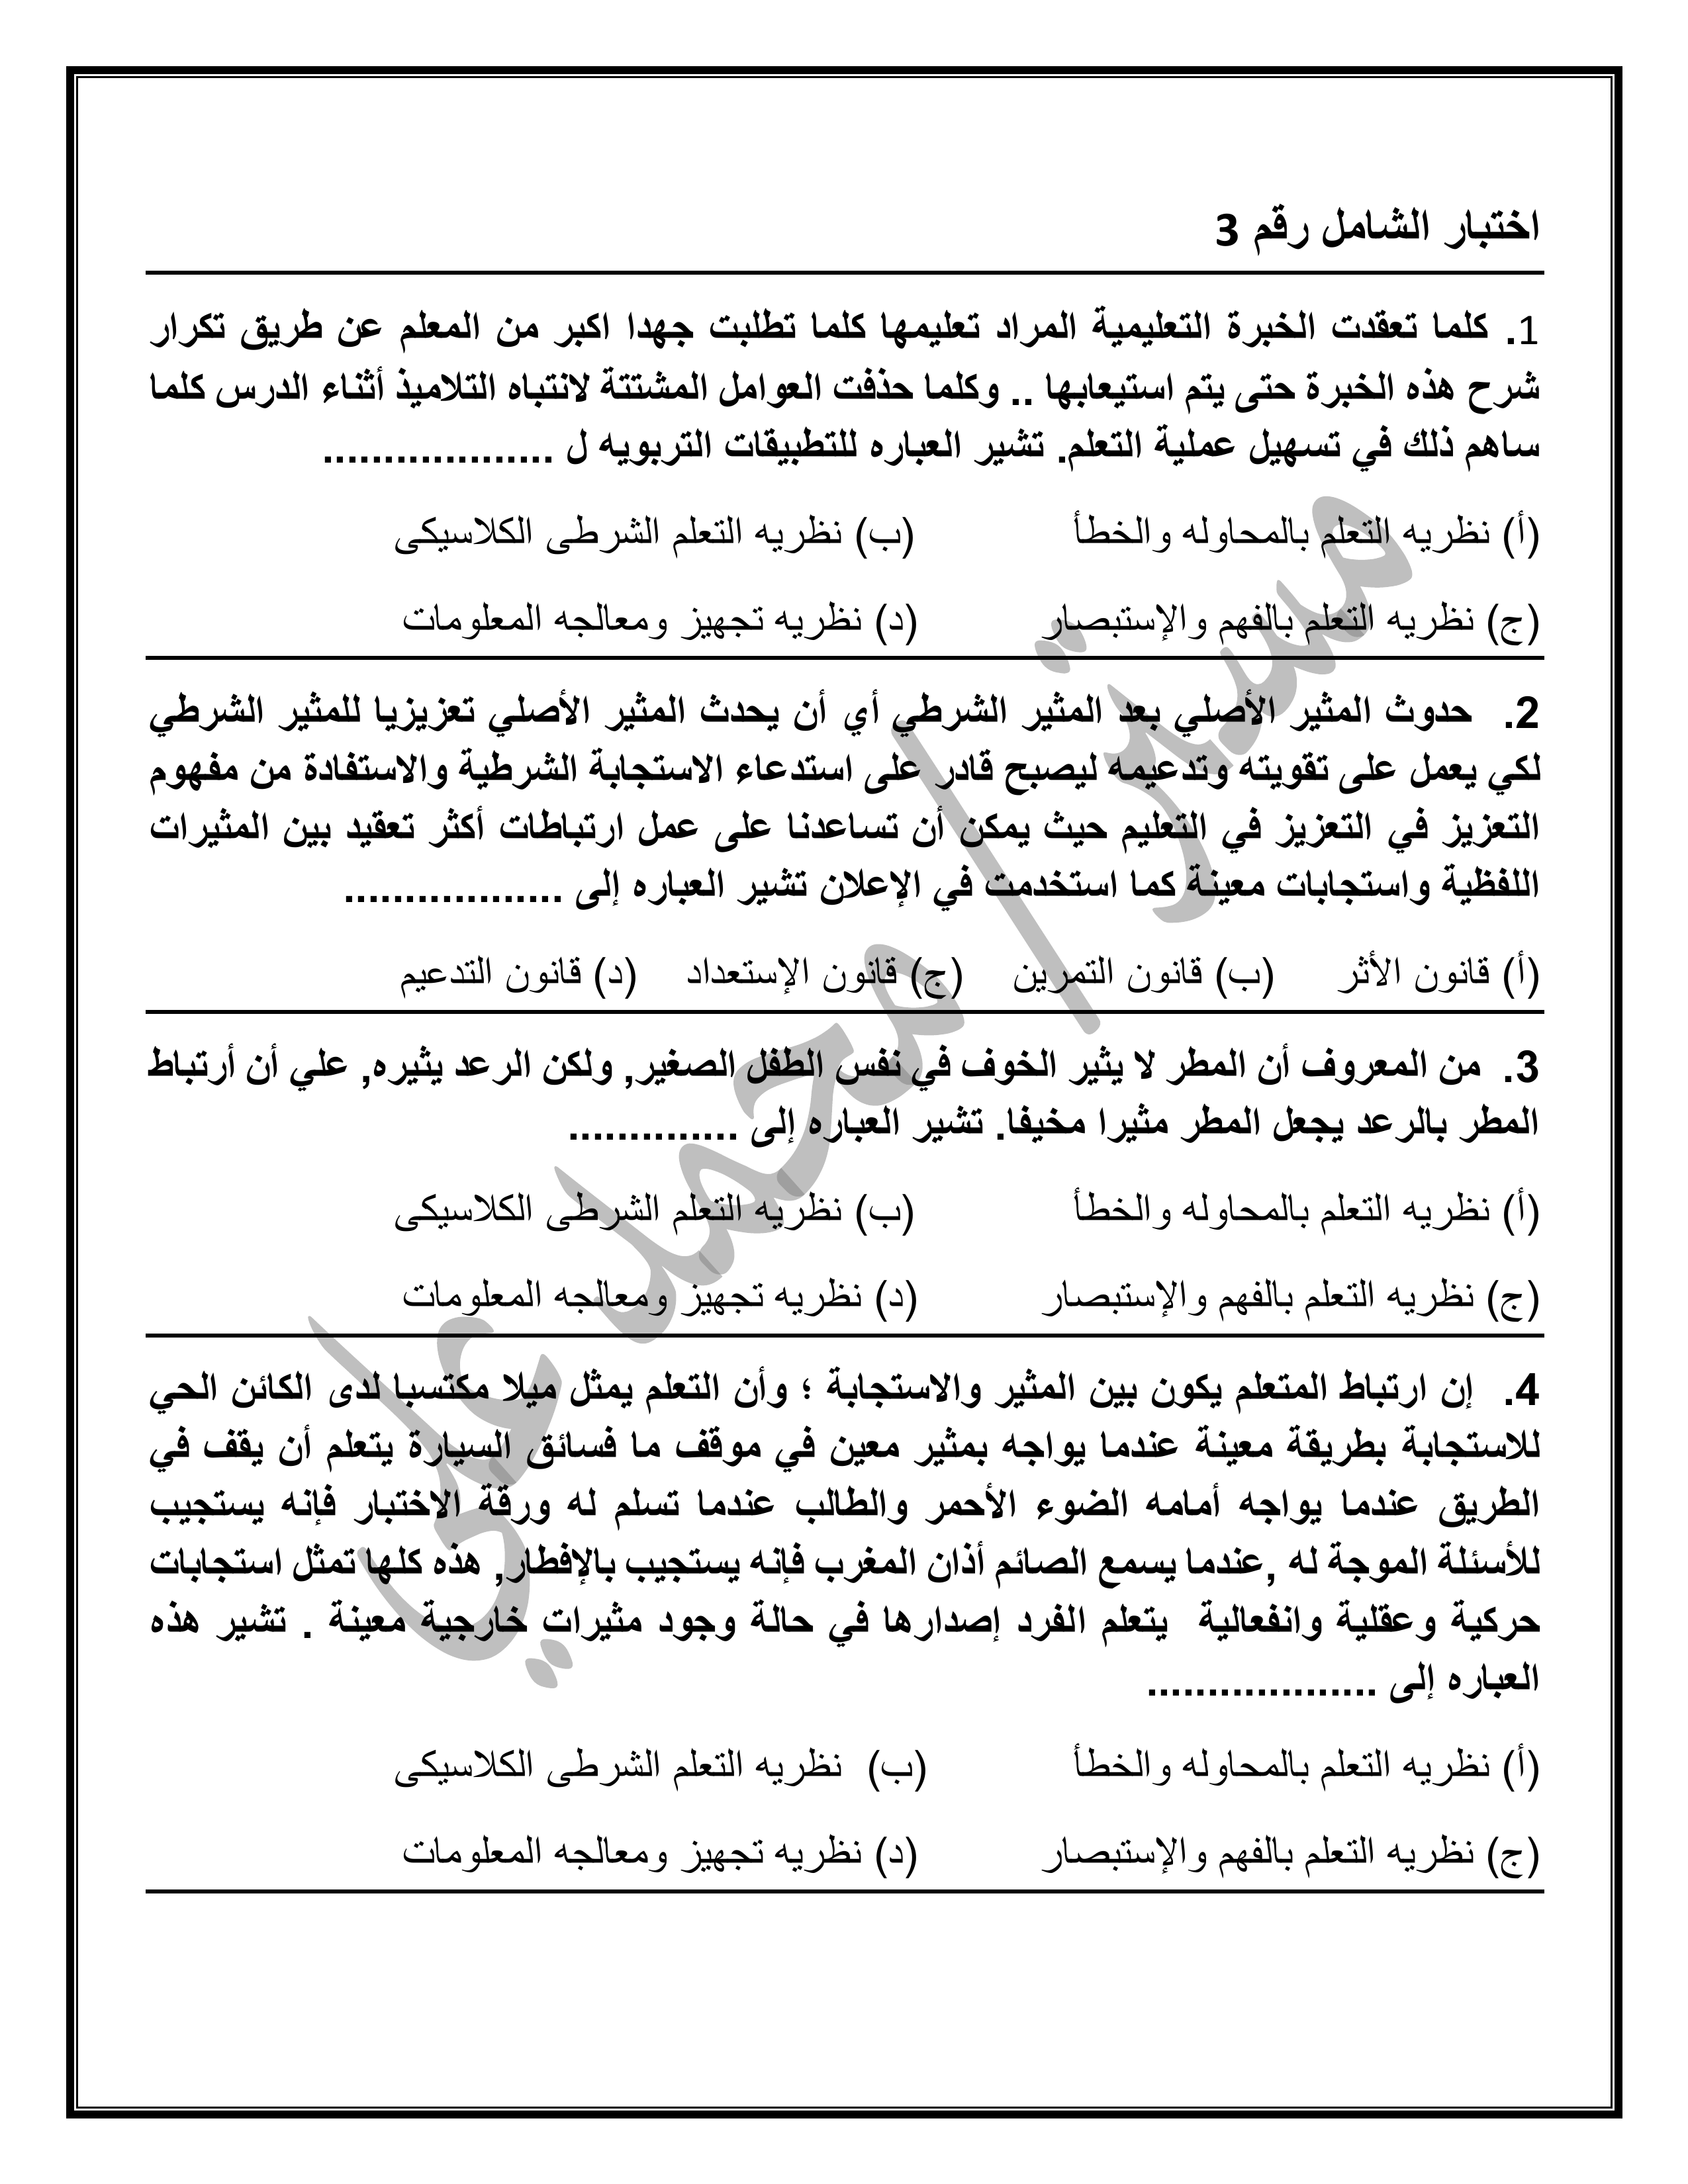 اختبار الشامل رقم 3
1. كلما تعقدت الخبرة التعليمية المراد تعليمها كلما تطلبت جهدا اكبر من المعلم عن طريق تكرار
شرح هذه الخبرة حتى يتم استيعابها .. وكلما حذفت العوامل المشتتة لانتباه التلاميذ أثناء الدرس كلما
ساهم ذلك في تسهيل عملية التعلم. تشير العباره للتطبيقات التربويه ل ...................
(أ) نظريه التعلم بالمحاوله والخطأ (ب) نظريه التعلم الشرطى الكلاسيكى
(ج) نظريه التعلم بالفهم والإستبصار (د) نظريه تجهيز ومعالجه المعلومات
2. حدوث المثير الأصلي بعد المثير الشرطي أي أن يحدث المثير الأصلي تعزيزيا للمثير الشرطي
لكي يعمل على تقويته وتدعيمه ليصبح قادر على استدعاء الاستجابة الشرطية والاستفادة من مفهوم
التعزيز في التعزيز في التعليم حيث يمكن أن تساعدنا على عمل ارتباطات أكثر تعقيد بين المثيرات
اللفظية واستجابات معينة كما استخدمت في الإعلان تشير العباره إلى ..................
(أ) قانون الأثر (ب) قانون التمرين (ج) قانون الإستعداد (د) قانون التدعيم
3. من المعروف أن المطر لا يثير الخوف في نفس الطفل الصغير, ولكن الرعد يثيره, علي أن أرتباط
المطر بالرعد يجعل المطر مثيرا مخيفا. تشير العباره إلى ..............
(أ) نظريه التعلم بالمحاوله والخطأ (ب) نظريه التعلم الشرطى الكلاسيكى
(ج) نظريه التعلم بالفهم والإستبصار (د) نظريه تجهيز ومعالجه المعلومات
4. إن ارتباط المتعلم يكون بين المثير والاستجابة ؛ وأن التعلم يمثل ميلا مكتسبا لدى الكائن الحي
للاستجابة بطريقة معينة عندما يواجه بمثير معين في موقف ما فسائق السيارة يتعلم أن يقف في
الطريق عندما يواجه أمامه الضوء الأحمر والطالب عندما تسلم له ورقة الاختبار فإنه يستجيب
للأسئلة الموجة له ,عندما يسمع الصائم أذان المغرب فإنه يستجيب بالإفطار, هذه كلها تمثل استجابات
حركية وعقلية وانفعالية يتعلم الفرد إصدارها في حالة وجود مثيرات خارجية معينة . تشير هذه
العباره إلى ...................
(أ) نظريه التعلم بالمحاوله والخطأ (ب) نظريه التعلم الشرطى الكلاسيكى
(ج) نظريه التعلم بالفهم والإستبصار (د) نظريه تجهيز ومعالجه المعلومات
مستر / محمد علي